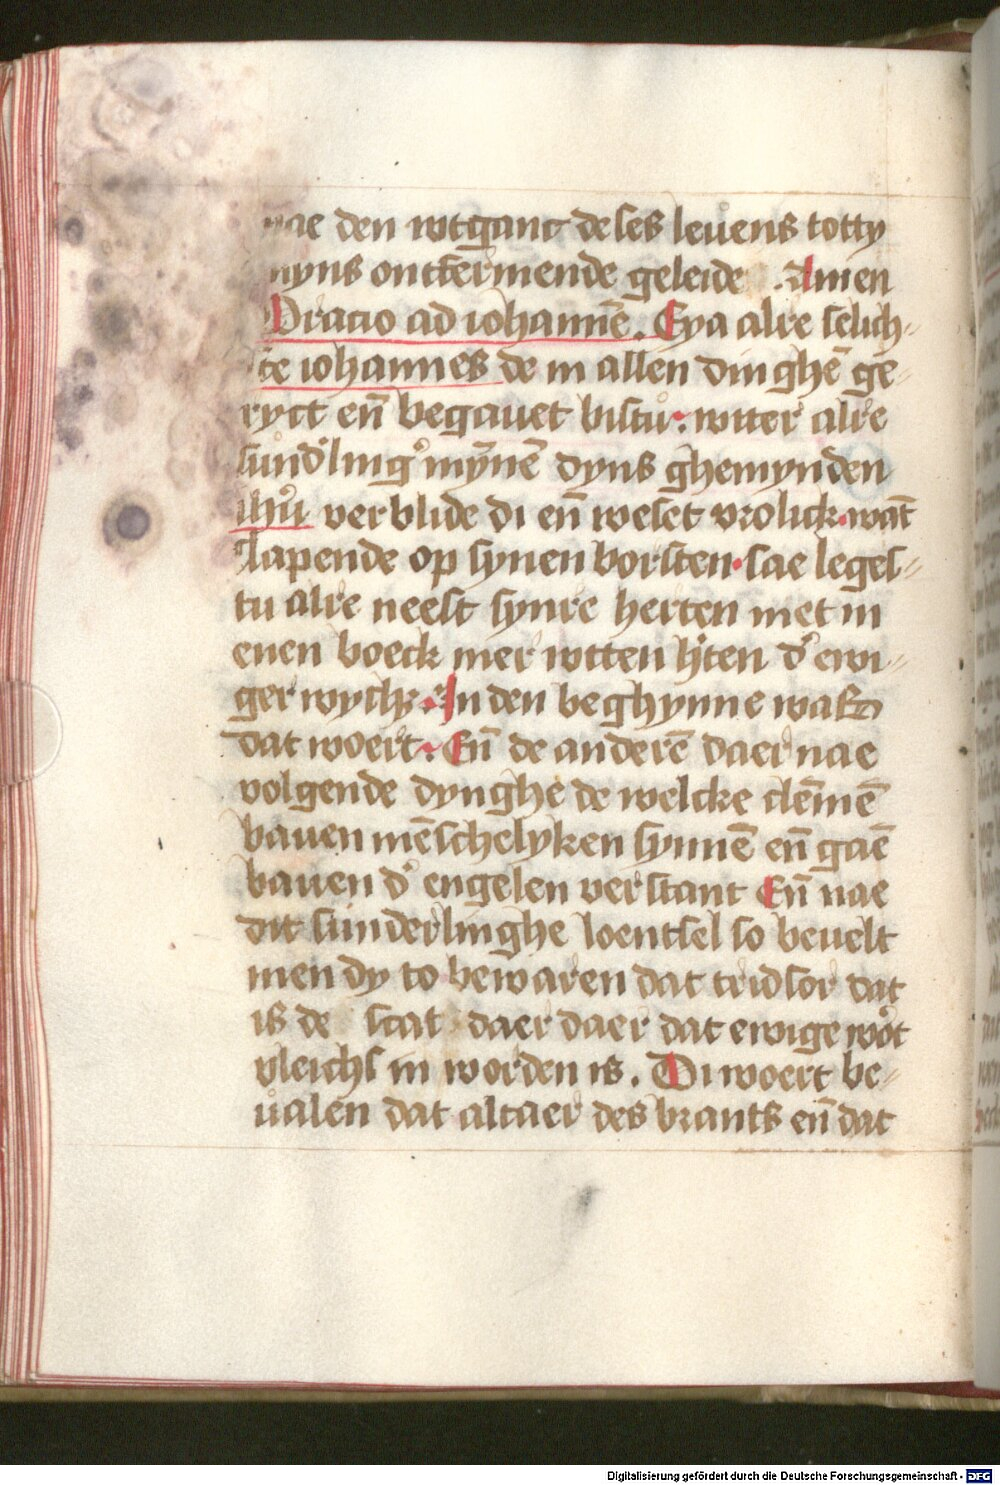 nae den wtganc deses leuens totty
myns ontfermende geleide . Amen
Oracio ad iohannē. Eya alre selich-
ste iohannes de in allen dinghē ge-
ryct eñ begauet bistu. witer alre
sund'ling' mỹnē dyns ghemynden
ihū verblide di eñ weset vrolick wāt
slapende op synen borsten sae leges-
tu alre neest synre herten met in
enen boeck mer witen h'ten d' ewi-
ger wych; In den beghynne was
dat woert. Eñ de anderē daer nae
volgende dynghe de welcke clēmē
bauen mēschelyken synnē eñ gaē
bauen d' engelen verstant Eñ nae
dit sunderlinghe loentsel so beuelt
men dy to bewaren dat tridsor dat
is de scat daer daer dat ewige wo't
vleichs in worden is. Di woert be-
ualen dat altaer des brants eñ dat
Digitalisierung gefördert durch die Deutsche Forschungsgemeinschaft - DFG